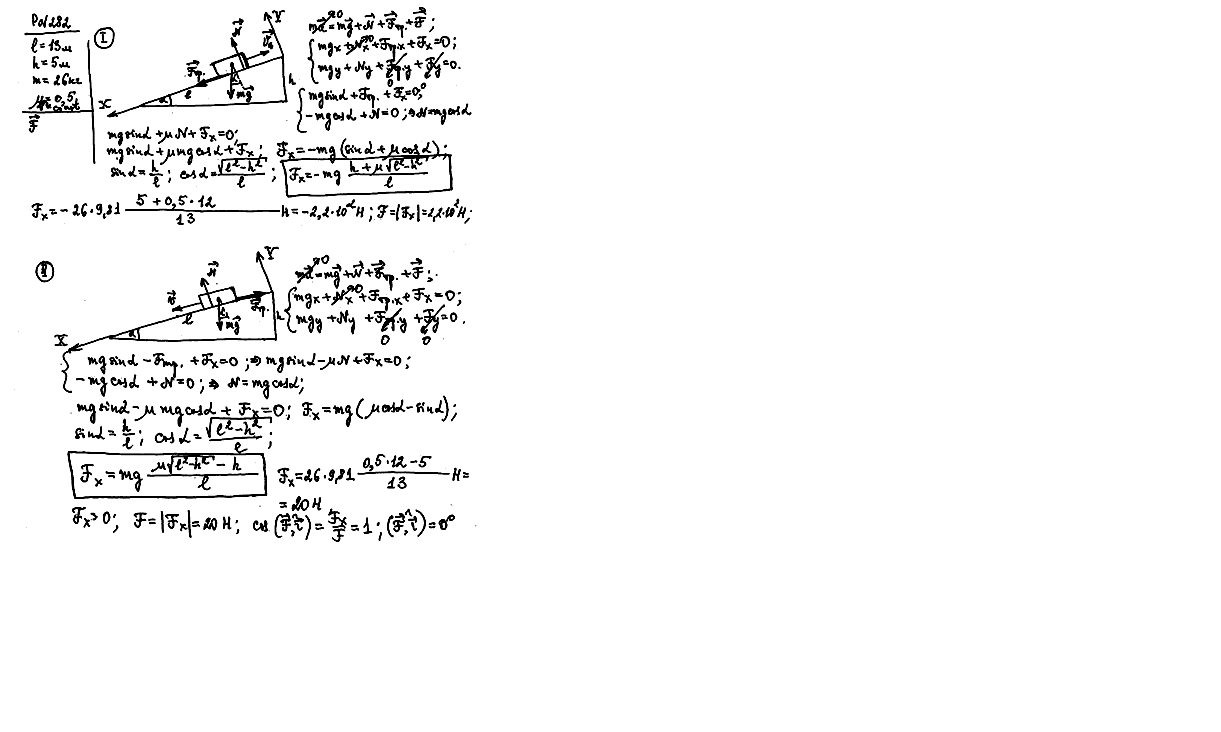 Р №282
l=13м
h=5м
m=26кг
μ=0,5
F⃗
I
ma⃗=mg⃗+N⃗+F⃗тр.+F⃗;
mgx+Nx+Fтр.x+Fx=0;
mgy+Ny+Fтр.y+Fy=0.
mgsinα+Fтр.+Fx=0;
-mgcosα+N=0;⇒N=mgcosα
mgsinα+μN+Fx=0;
mgsinα+μmgcosα+Fx; Fx=-mg(sinα+μcosα);
sinα=h/l; cosα=√(l²-h²)/l; Fx=-mg (h+μ√(l²-h²))/l
Fx=-26·9,81 (5+0,5·12)/13 Н=-2,2·10²Н; F=|Fx|=2,2·10²Н;
II
ma⃗=mg⃗+N⃗+F⃗тр.+F⃗;
mgx+Nx+Fтр.x+Fx=0;
mgy+Ny+Fтр.y+Fy=0.
mgsinα-Fтр.+Fx=0;⇒mgsinα-μN+Fx=0;
-mgcosα+N=0;⇒N=mgcosα;
mgsinα-μmgcosα+Fx=0; Fx=mg(μcosα-sinα);
sinα=h/l; cosα=√(l²-h²)/l;
Fx=mg (μ√(l²-h²)-h)/l Fx=26·9,81 (0,5·12-5)/13 Н=
=20Н
Fx>0; F=|Fx|=20Н; cos(F⃗,^i⃗)=Fx/F=1; (F⃗,^i⃗)=0°